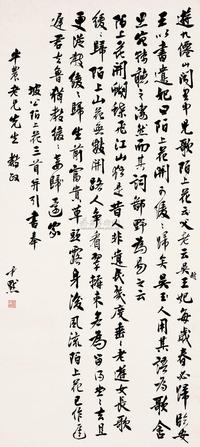 遊九僊山聞里中兒歌陌上花父老云吳越王妃每歲春必歸臨安
王以書遺妃曰陌上花開可緩緩歸矣吳人用其語為歌含
思宛轉聽之凄然而其詞鄙野為易之云
陌上花開蝴蝶飛江山猶是昔人非遺民幾度垂垂老遊女長歌
緩緩歸陌上山花無數開路人爭看翠軿來若為留得堂堂去且
更從教緩緩歸生前富貴草頭露身後風流陌上花已作遲
遲君去魯猶教緩緩妾還家
坡公陌上花三首并引書奉
半農老兄先生教政
尹默